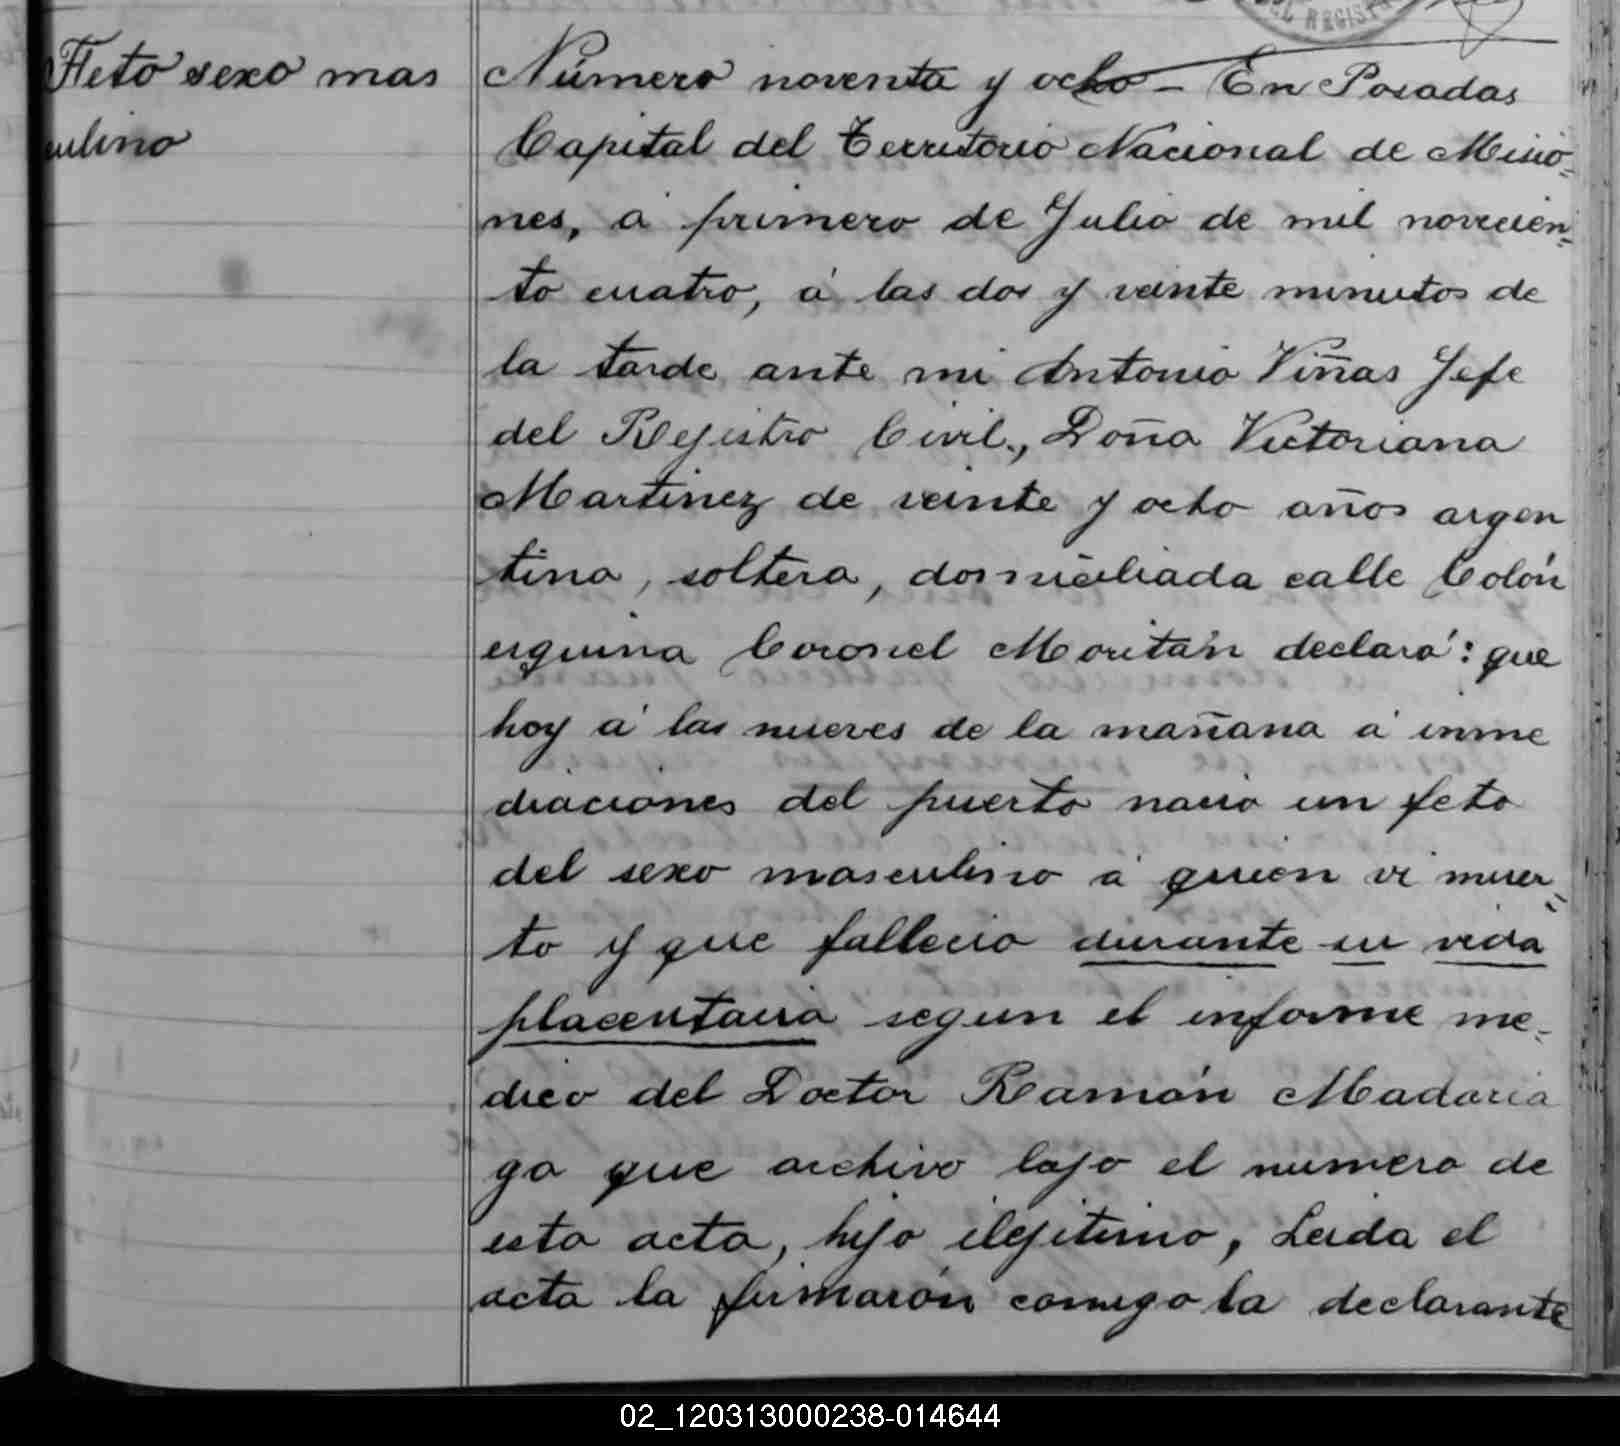 Feto sexo mas
culino
REGIST
Número noventa y ocho - En Posadas
Capital del Territorio Nacional de Misio-
nes, á primero de Julio de mil novecien-
to cuatro, á las dos y veinte minutos de
la tarde ante mi Antonio Viñas Jefe
del Registro Civil, Doña Victoriana
Martinez de veinte y ocho años argen
tina, soltera, domiciliada calle Colón
esquina Coronel Moritán declaró: que
hoy á las nueves de la mañana á inme
diaciones del puerto nacio un feto
del sexo masculino á quien vi muer-
to y que fallecio durante su vida
placentaria segun el informe me-
dico del Doctor Ramón Madaria
ga que archivo bajo el numero de
esta acta, hijo ilejitimo, Leida el
acta la firmarón comigo la declarante
02_120313000238-014644